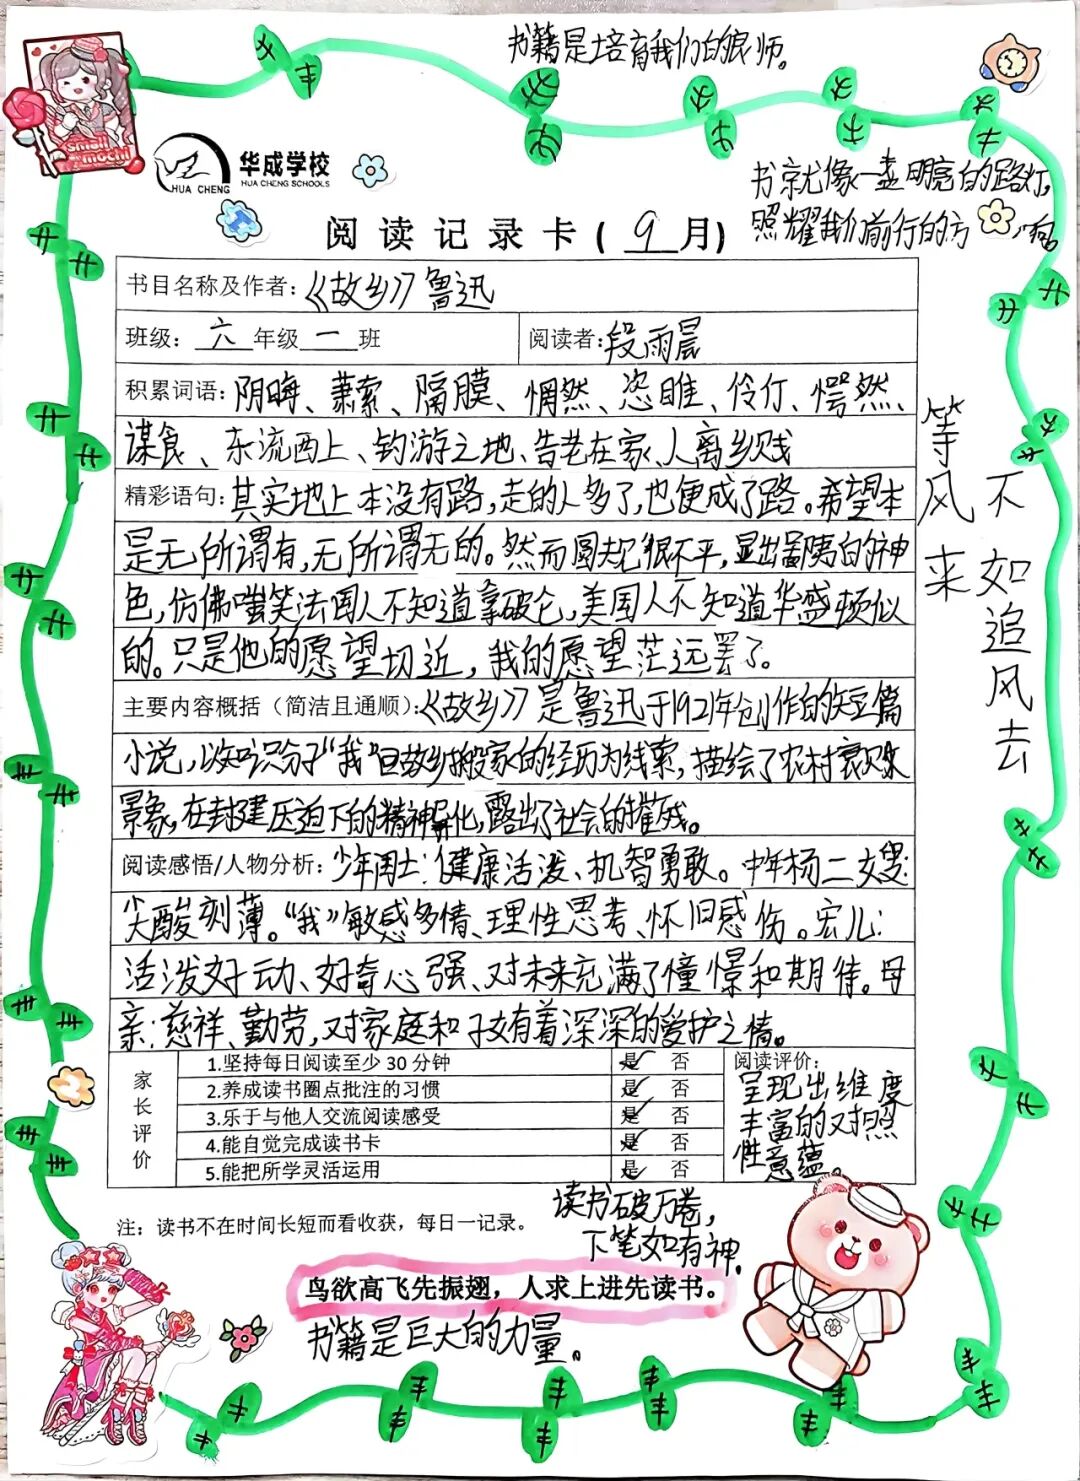 书籍是培育我们的狠师。
small
mochi
HUA CHENG
华成学校
HUA CHENG SCHOOLS
书就像一盏明亮的路灯,
照耀我们前行的方向。
阅读记录卡(9月)
书目名称及作者:《故乡》鲁迅
班级:六年级一班
阅读者:段雨晨
积累词语:阴晦、萧索、隔膜、惘然、恣睢、伶仃、愕然、
谋食、东流西上、钓游之地、告老在家、人离乡贱
精彩语句:其实地上本没有路,走的人多了,也便成了路。希望本
是无所谓有,无所谓无的。然而圆规很不平,显出鄙夷的神
色,仿佛嗤笑法国人不知道拿破仑,美国人不知道华盛顿似
的。只是他的愿望切近,我的愿望茫远罢了。
主要内容概括(简洁且通顺):《故乡》是鲁迅于1921年创作的短篇
小说,以知识分子“我”回故乡搬家的经历为线索,描绘了农村衰败
景象,在封建压迫下的精神异化,露出了社会的摧残。
阅读感悟/人物分析:少年闰土:健康活泼、机智勇敢。中年杨二嫂:
尖酸刻薄。“我”敏感多情、理性思考、怀旧感伤。宏儿:
活泼好动、好奇心强、对未来充满了憧憬和期待。母
亲:慈祥、勤劳,对家庭和子女有着深深的爱护之情。
家长评价
1.坚持每日阅读至少30分钟 是 否
2.养成读书圈点批注的习惯 是 否
3.乐于与他人交流阅读感受 是 否
4.能自觉完成读书卡 是 否
5.能把所学灵活运用 是 否
阅读评价:
呈现出维度
丰富的对照
性意蕴。
注:读书不在时间长短而看收获,每日一记录。
读书破万卷,
下笔如有神.
鸟欲高飞先振翅,人求上进先读书。
书籍是巨大的力量。
等风来
不如追风去